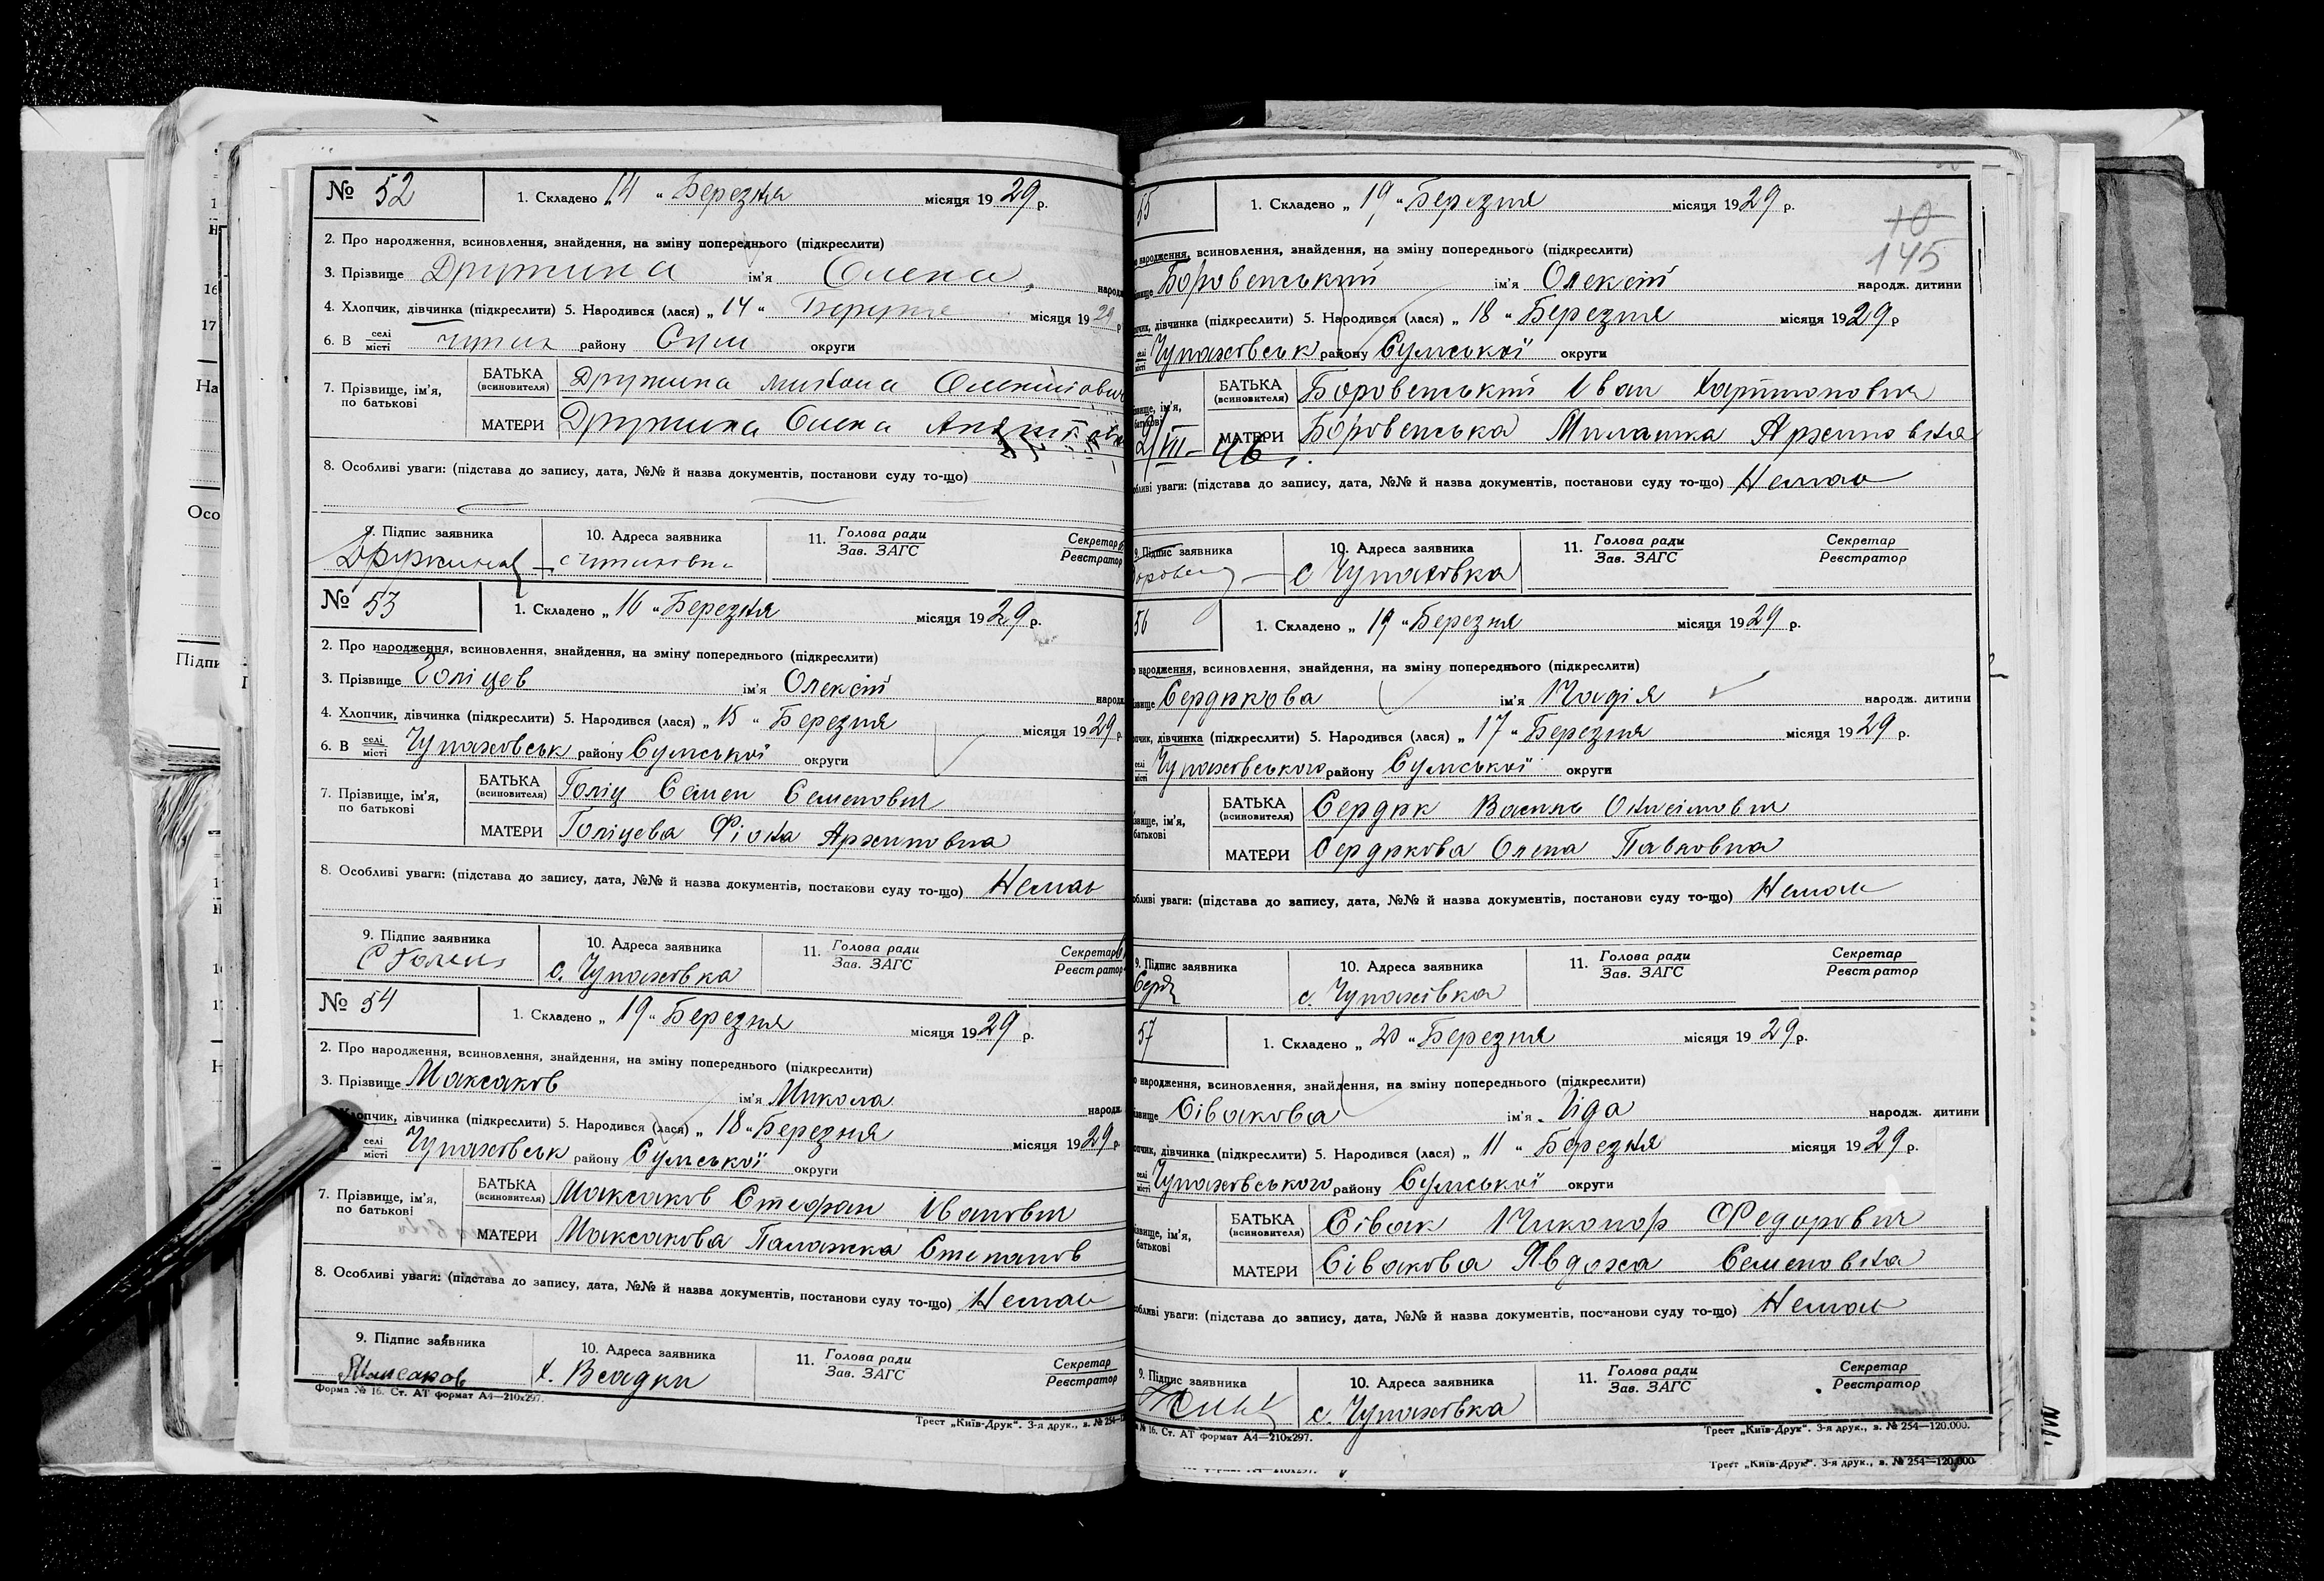 № 52
1. Складено „ 14 “ Березня місяця 1929 р.
2. Про народження, всиновлення, знайдення, на зміну попереднього (підкреслити)
3. Прізвище Дружина ім'я Олена народж
4. Хлопчик, дівчинка (підкреслити) 5. Народився (лася) „ 14 “ Березня місяця 1929 р
6. В селі місті району Сум округи
7. Прізвище, ім'я, по батькові
БАТЬКА (всиновителя) Дружина Олексійович
МАТЕРИ Дружина Олена
8. Особливі уваги: (підстава до запису, дата, №№ й назва документів, постанови суду то-що)
9. Підпис заявника 10. Адреса заявника 11. Голова ради Зав. ЗАГС Секретар Реєстратор
Дружина
№ 53
1. Складено „ 16 “ Березня місяця 1929 р.
2. Про народження, всиновлення, знайдення, на зміну попереднього (підкреслити)
3. Прізвище Голіцев ім'я Олексій народж
4. Хлопчик, дівчинка (підкреслити) 5. Народився (лася) „ 15 “ Березня місяця 1929 р.
6. В селі місті Чупахівськ району Сумської округи
7. Прізвище, ім'я, по батькові
БАТЬКА (всиновителя) Голіц Семен Семенович
МАТЕРИ Голіцева Фіона Архиповна
8. Особливі уваги: (підстава до запису, дата, №№ й назва документів, постанови суду то-що) Немає
9. Підпис заявника 10. Адреса заявника 11. Голова ради Зав. ЗАГС Секретар Реєстратор
с. Чупахівка
№ 54
1. Складено „ 19 “ Березня місяця 1929 р.
2. Про народження, всиновлення, знайдення, на зміну попереднього (підкреслити)
3. Прізвище Максаков ім'я Микола народж
Хлопчик, дівчинка (підкреслити) 5. Народився (лася) „ 18 “ Березня місяця 1929 р
селі місті Чупахівськ району Сумської округи
7. Прізвище, ім'я, по батькові
БАТЬКА (всиновителя) Максаков Стефан Іванович
МАТЕРИ Максакова Палажка Степанов
8. Особливі уваги: (підстава до запису, дата, №№ й назва документів, постанови суду то-що) Немає
9. Підпис заявника 10. Адреса заявника 11. Голова ради Зав. ЗАГС Секретар Реєстратор
Максаков
Форма № 16. Ст. АТ формат А4—210х297.
Трест „Київ-Друк“. 3-я друк., з. № 254—12
55
1. Складено „ 19 “ Березня місяця 1929 р.
10
145
народження, всиновлення, знайдення, на зміну попереднього (підкреслити)
Боровенський ім'я Олексій народж. дитини
дівчинка (підкреслити) 5. Народився (лася) „ 18 “ Березня місяця 1929 р
селі місті Чупахівськ району Сумської округи
БАТЬКА (всиновителя) Боровенський Іван Харитонович
МАТЕРИ Боровенська Милашка Архиповна
2/III-46 г.
уваги: (підстава до запису, дата, №№ й назва документів, постанови суду то-що) Немає
9. Підпис заявника 10. Адреса заявника 11. Голова ради Зав. ЗАГС Секретар Реєстратор
с Чупахівка
56
1. Складено „ 19 “ Березня місяця 1929 р.
народження, всиновлення, знайдення, на зміну попереднього (підкреслити)
Сердюкова ім'я Надія народж. дитини
дівчинка (підкреслити) 5. Народився (лася) „ 17 “ Березня місяця 1929 р.
селі місті Чупахівського району Сумської округи
БАТЬКА (всиновителя) Сердюк Василь Онисімович
МАТЕРИ Сердюкова Олена Павловна
уваги: (підстава до запису, дата, №№ й назва документів, постанови суду то-що) Немає
9. Підпис заявника 10. Адреса заявника 11. Голова ради Зав. ЗАГС Секретар Реєстратор
с. Чупахівка
57
1. Складено „ 20 “ Березня місяця 1929 р.
народження, всиновлення, знайдення, на зміну попереднього (підкреслити)
Сівакова ім'я Ліда народж. дитини
дівчинка (підкреслити) 5. Народився (лася) „ 11 “ Березня місяця 1929 р.
селі місті Чупахівського району Сумської округи
БАТЬКА (всиновителя) Сівак Никонор Федорович
МАТЕРИ Сівакова Явдоха Семеновна
уваги: (підстава до запису, дата, №№ й назва документів, постанови суду то-що) Немає
9. Підпис заявника 10. Адреса заявника 11. Голова ради Зав. ЗАГС Секретар Реєстратор
с. Чупахівка
№ 16. Ст. АТ формат А4—210х297.
Трест „Київ-Друк“. 3-я друк., з. № 254—120.000.
Трест „Київ-Друк“. 3-я друк., з. № 254—120.000